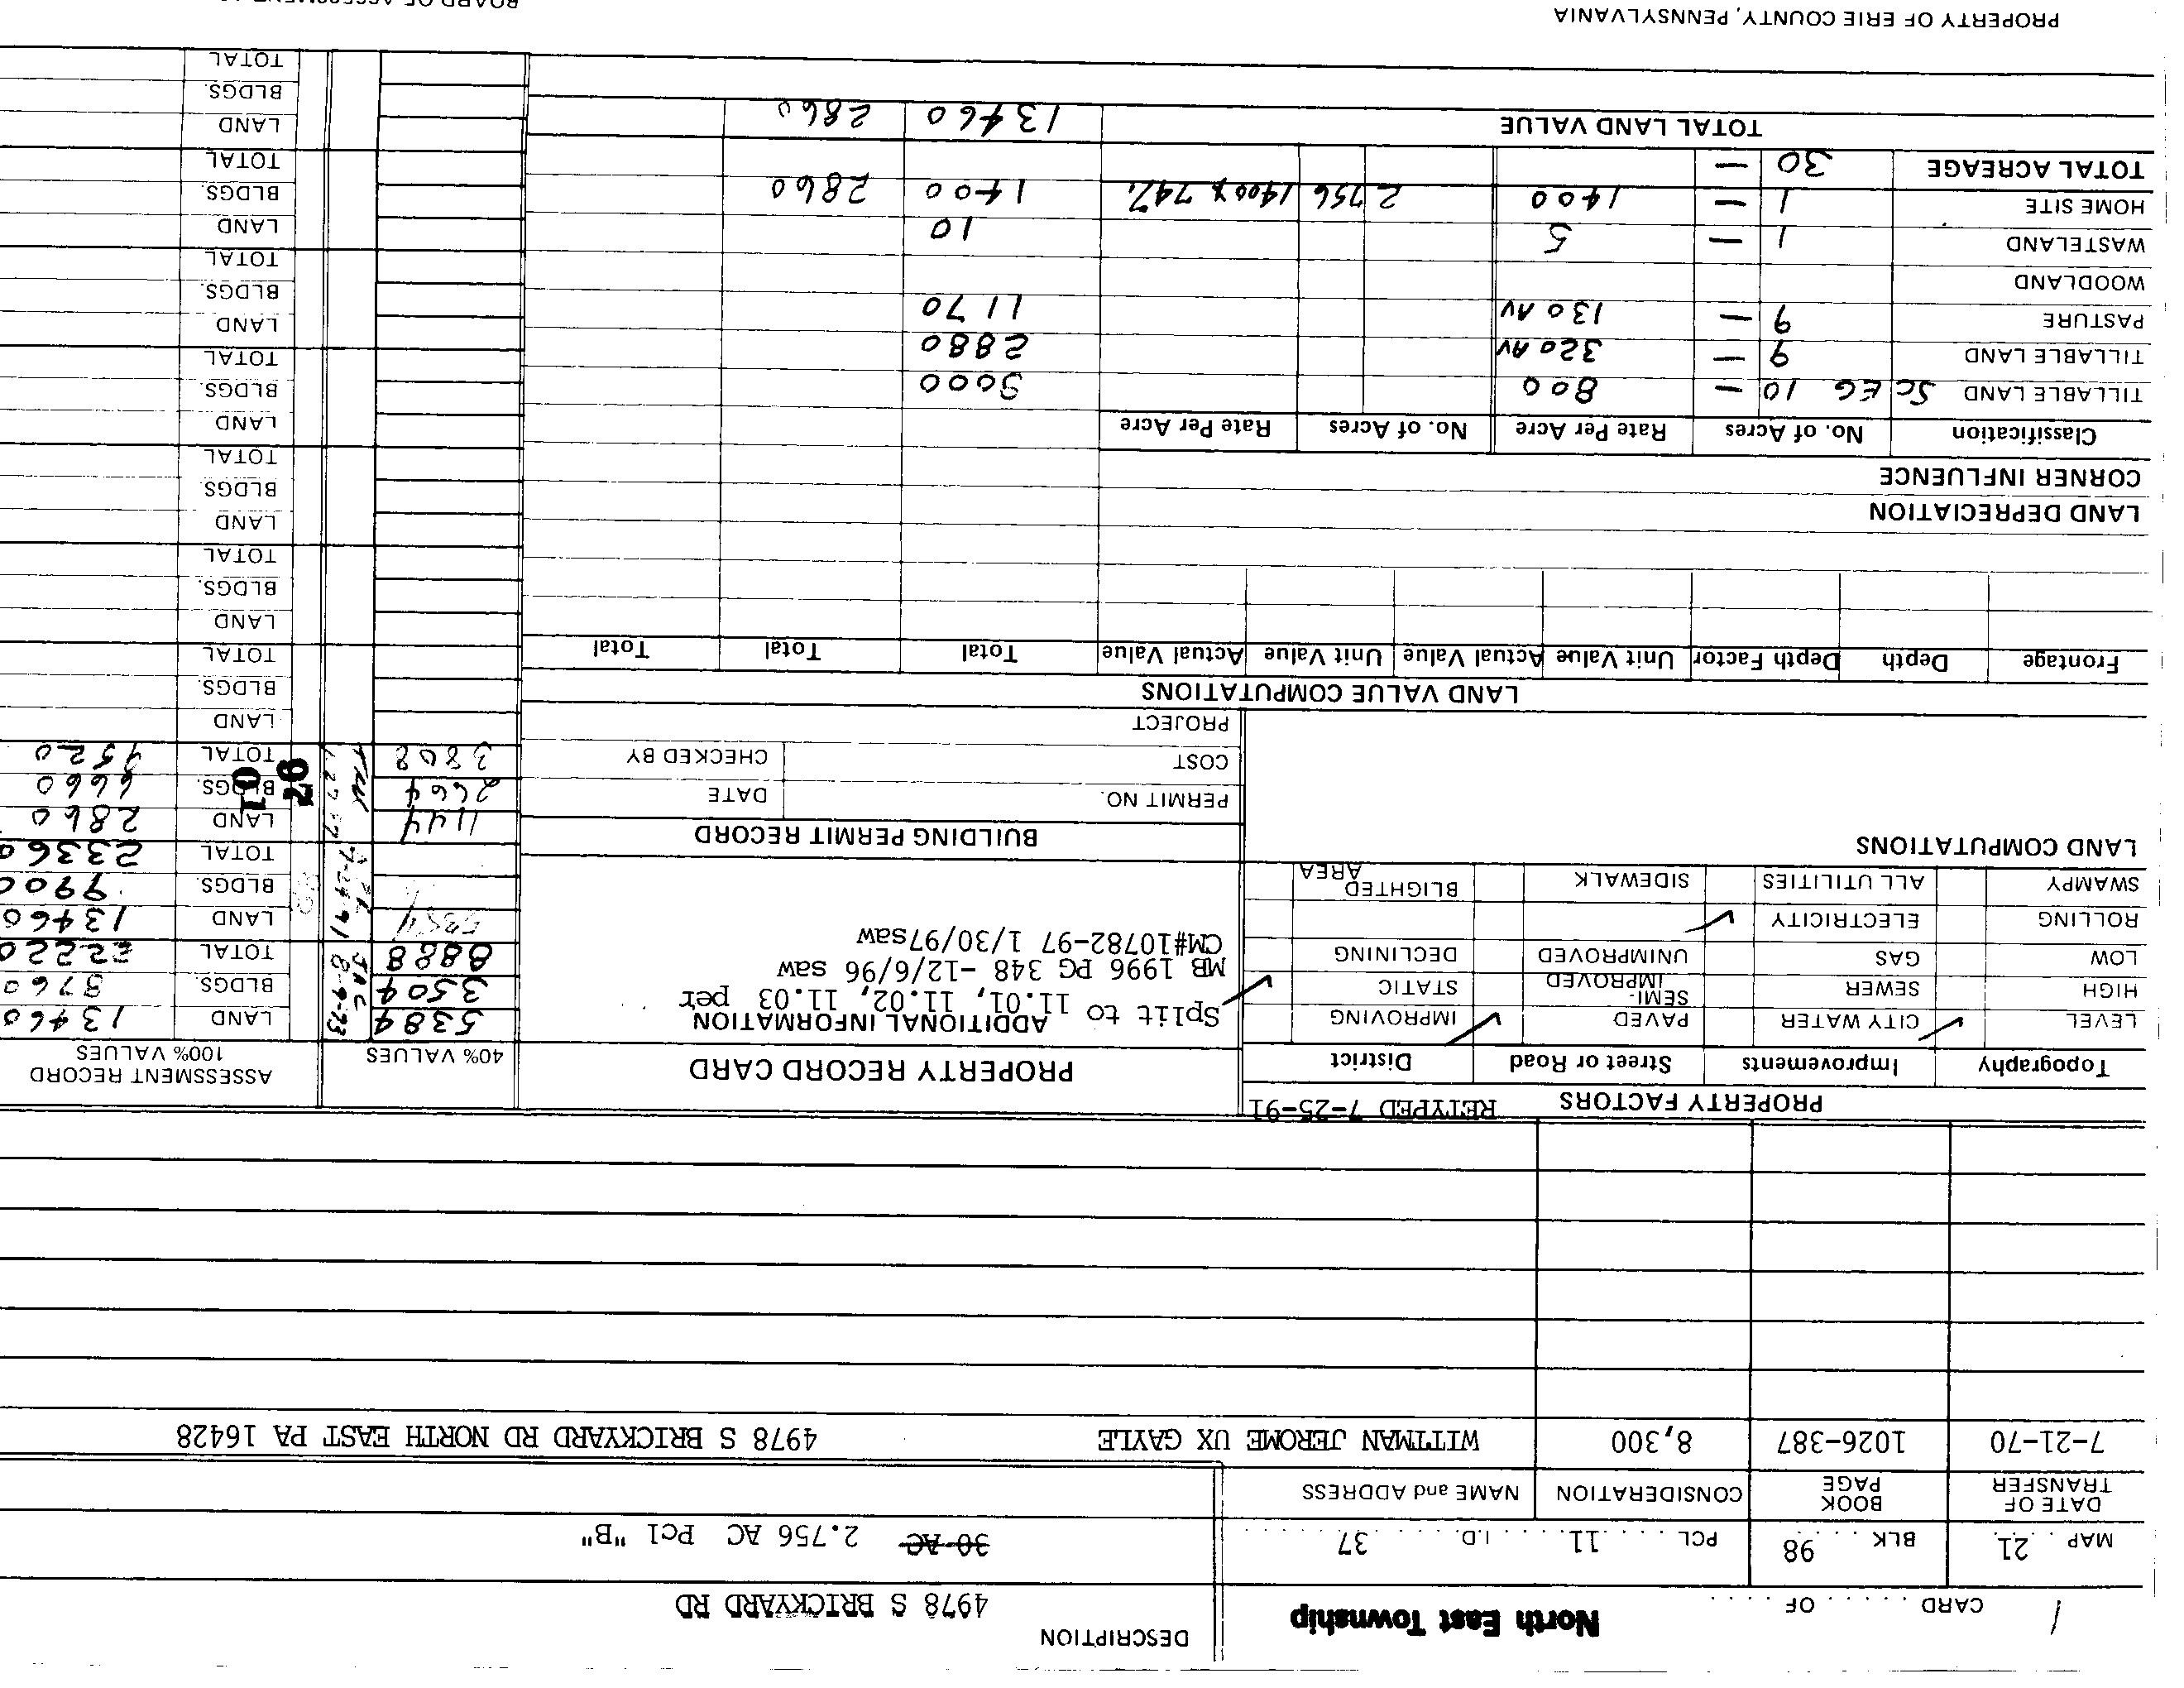 CARD 1 OF
North East Township
DESCRIPTION
4978 S BRICKYARD RD
MAP 21 BLK 98 PCL 11 I.D. 37
30 AC 2.756 AC Pcl "B"
DATE OF TRANSFER BOOK PAGE CONSIDERATION NAME and ADDRESS
7-21-70 1026-387 8,300 WITTMAN JEROME UX GAYLE 4978 S BRICKYARD RD NORTH EAST PA 16428
PROPERTY FACTORS RETYPED 7-25-91
Topography Improvements Street or Road District
LEVEL CITY WATER PAVED IMPROVING
HIGH SEWER SEMI-IMPROVED STATIC
LOW GAS UNIMPROVED DECLINING
ROLLING ELECTRICITY
SWAMPY ALL UTILITIES SIDEWALK BLIGHTED AREA
LAND COMPUTATIONS
PROPERTY RECORD CARD
ADDITIONAL INFORMATION
Split to 11.01, 11.02, 11.03 per
MB 1996 PG 348 -12/6/96 saw
CM#10782-97 1/30/97saw
BUILDING PERMIT RECORD
PERMIT NO. DATE
COST CHECKED BY
PROJECT
40% VALUES ASSESSMENT RECORD 100% VALUES
5384 LAND 13460
3504 BLDGS. 8760
8888 TOTAL 22220
JAC 8-9-73
5384 LAND 13460
BLDGS. 9900
TOTAL 23360
7-24-91
1144 LAND 2860
2664 BLDGS. 6660
3808 TOTAL 9520
26
10
LAND
BLDGS.
TOTAL
LAND
BLDGS.
TOTAL
LAND
BLDGS
TOTAL
LAND
BLDGS.
TOTAL
LAND
BLDGS.
TOTAL
LAND
BLDGS.
TOTAL
LAND
BLDGS.
TOTAL
LAND VALUE COMPUTATIONS
Frontage Depth Depth Factor Unit Value Actual Value Unit Value Actual Value Total Total Total
LAND DEPRECIATION
CORNER INFLUENCE
Classification No. of Acres Rate Per Acre No. of Acres Rate Per Acre
TILLABLE LAND SC EG 10 — 800 8000
TILLABLE LAND 9 — 320 AV 2880
PASTURE 9 — 130 AV 1170
WOODLAND
WASTELAND 1 — 5 10
HOME SITE 1 — 1400 2 756 1400 x 74% 1400 2860
TOTAL ACREAGE 30 —
TOTAL LAND VALUE 13460 2860
PROPERTY OF ERIE COUNTY, PENNSYLVANIA